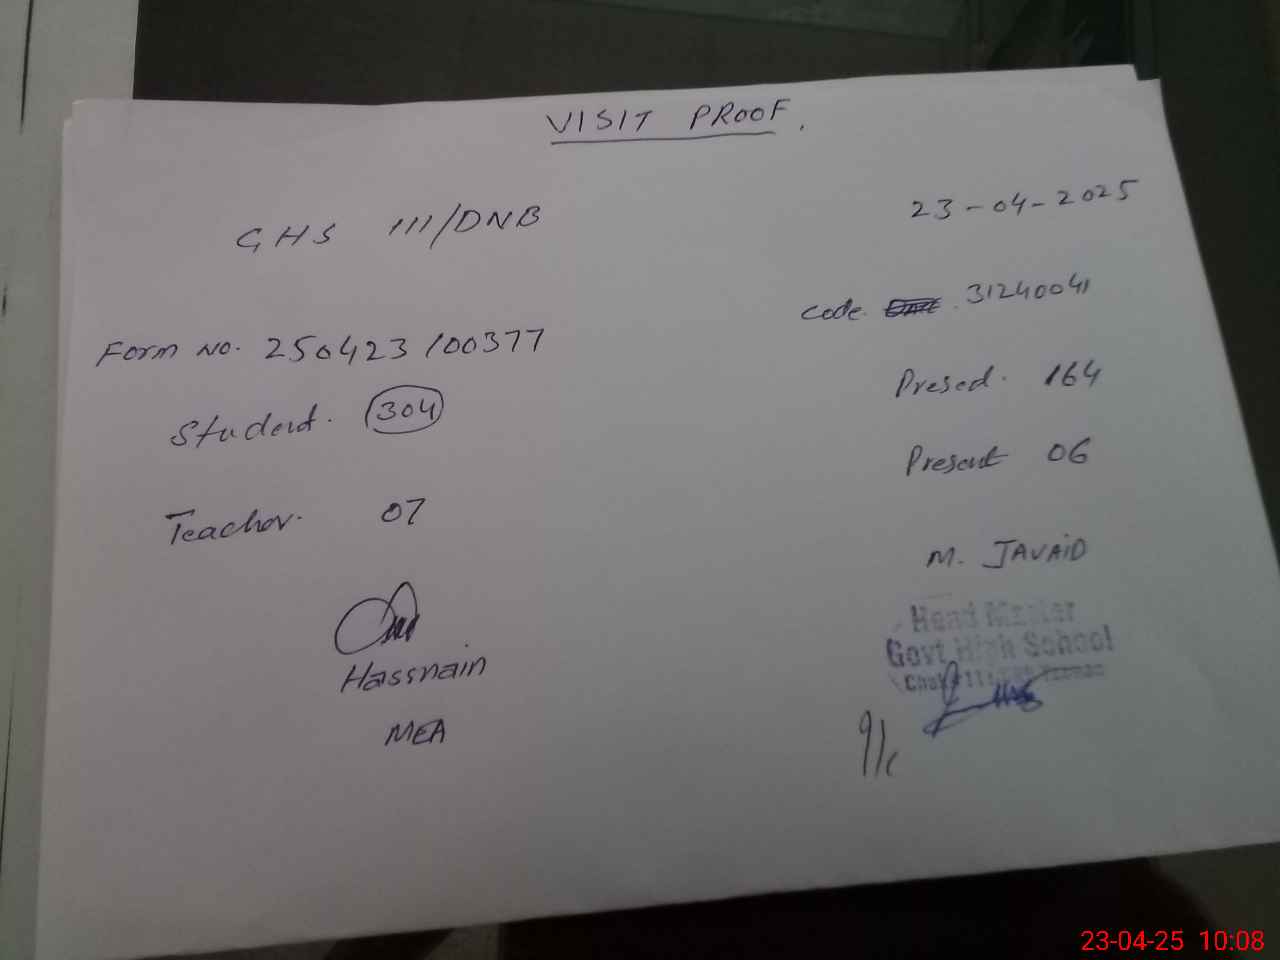 VISIT PROOF.
GHS 111/DNB
23-04-2025
Code. 31240041
Form No. 250423100377
Student. 304
Presed. 164
Teacher. 07
Present 06
M. JAVAID
Head Master
Govt High School
Chak 111
Hassnain
MEA
23-04-25 10:08